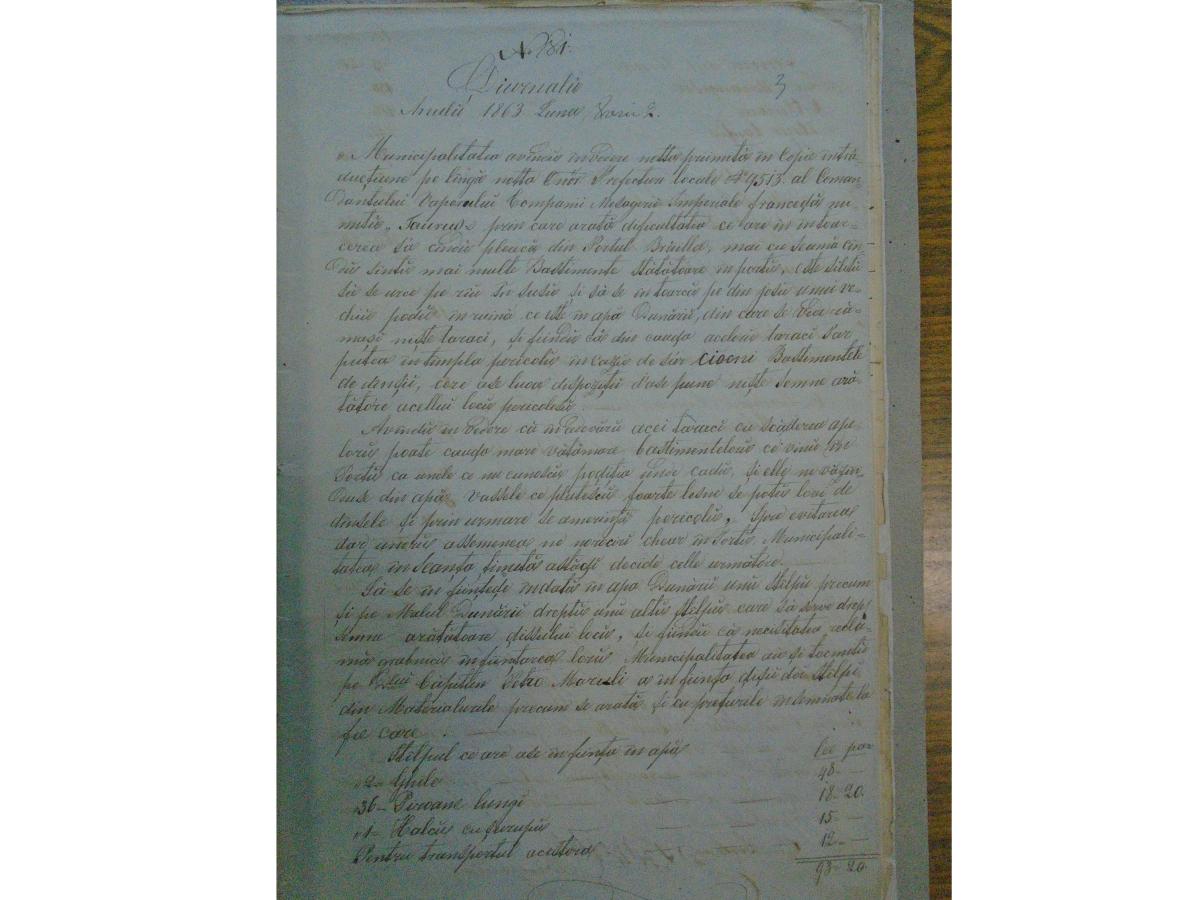 N. 181.
Diurnalu
3
Anulŭ 1863 Luna
Municipalitatea avîndŭ în vedere nota priimită în Copie intro
ducțiune pe lîngă nota Onor Prefecturi locale N. 9513. al Coman
dantului Vaporului Compani Mesagerii Imperiale franceză nu
mitŭ „Taurus" prin care arată dificultatea ce are în intoar-
cerea sa cîndŭ pleacă din Portul Brăilla, mai cu seamă cîn
dŭ sîntŭ mai multe Bastimente stătătoare în portŭ, este silitŭ
să se urce pe rîu în susŭ, și să se intoarcă pe din josŭ unui ve-
chiŭ podŭ în ruină ce este în apa Dunării, din care se vedŭ ră-
mași niște taraci, și fiindŭ că din cauza acelor taraci s'ar
putea întîmpla pericolŭ în cazŭ de s'ar cĭocni Bastimentele
de denșii, cere ase lua dispoziții d'ase pune niște semne ară-
tătóre acellui locŭ periculosŭ.
Avîndŭ în vedere că acei taraci cu scăderea ape-
lorŭ poate cauza mare vătămare bastimentelorŭ ce vinŭ în
Portŭ ca unele ce nu cunoscŭ poziția și elle ne văzîn
duse din apă, vassele ce plutescŭ foarte lesne se potŭ lovi de
dînsele și prin urmare se amerință pericolŭ, Spre evitarea
dar unorŭ assemenea ne noriciri chear în Portŭ, Municipali-
tatea în Seanța ținută astăḑi decide celle urmatóre.
Să se înființeḑe indată în apa Dunării unŭ stîlpŭ precum
și pe Malul Dunării dreptŭ unŭ altŭ stîlpŭ care să serve drep
semne arătătoare dissului locŭ, și fiindŭ că necesitatea recla-
mă grabnica înființarea lorŭ Municipalitatea aŭ și tocmitŭ
pe D-lui Capitan Petro Maruli a înființa dișii doi stîlpi
din Materialurile precum se arată și cu prețurile însemnate la
fie care.
Stîlpul ce are ase înființa în apă lee par
2 Ghile 48 —
36 Piroane lungi 18 20
1 Halcă cu șurupŭ 15 —
Pentru transportul acestora 12 —
93 20